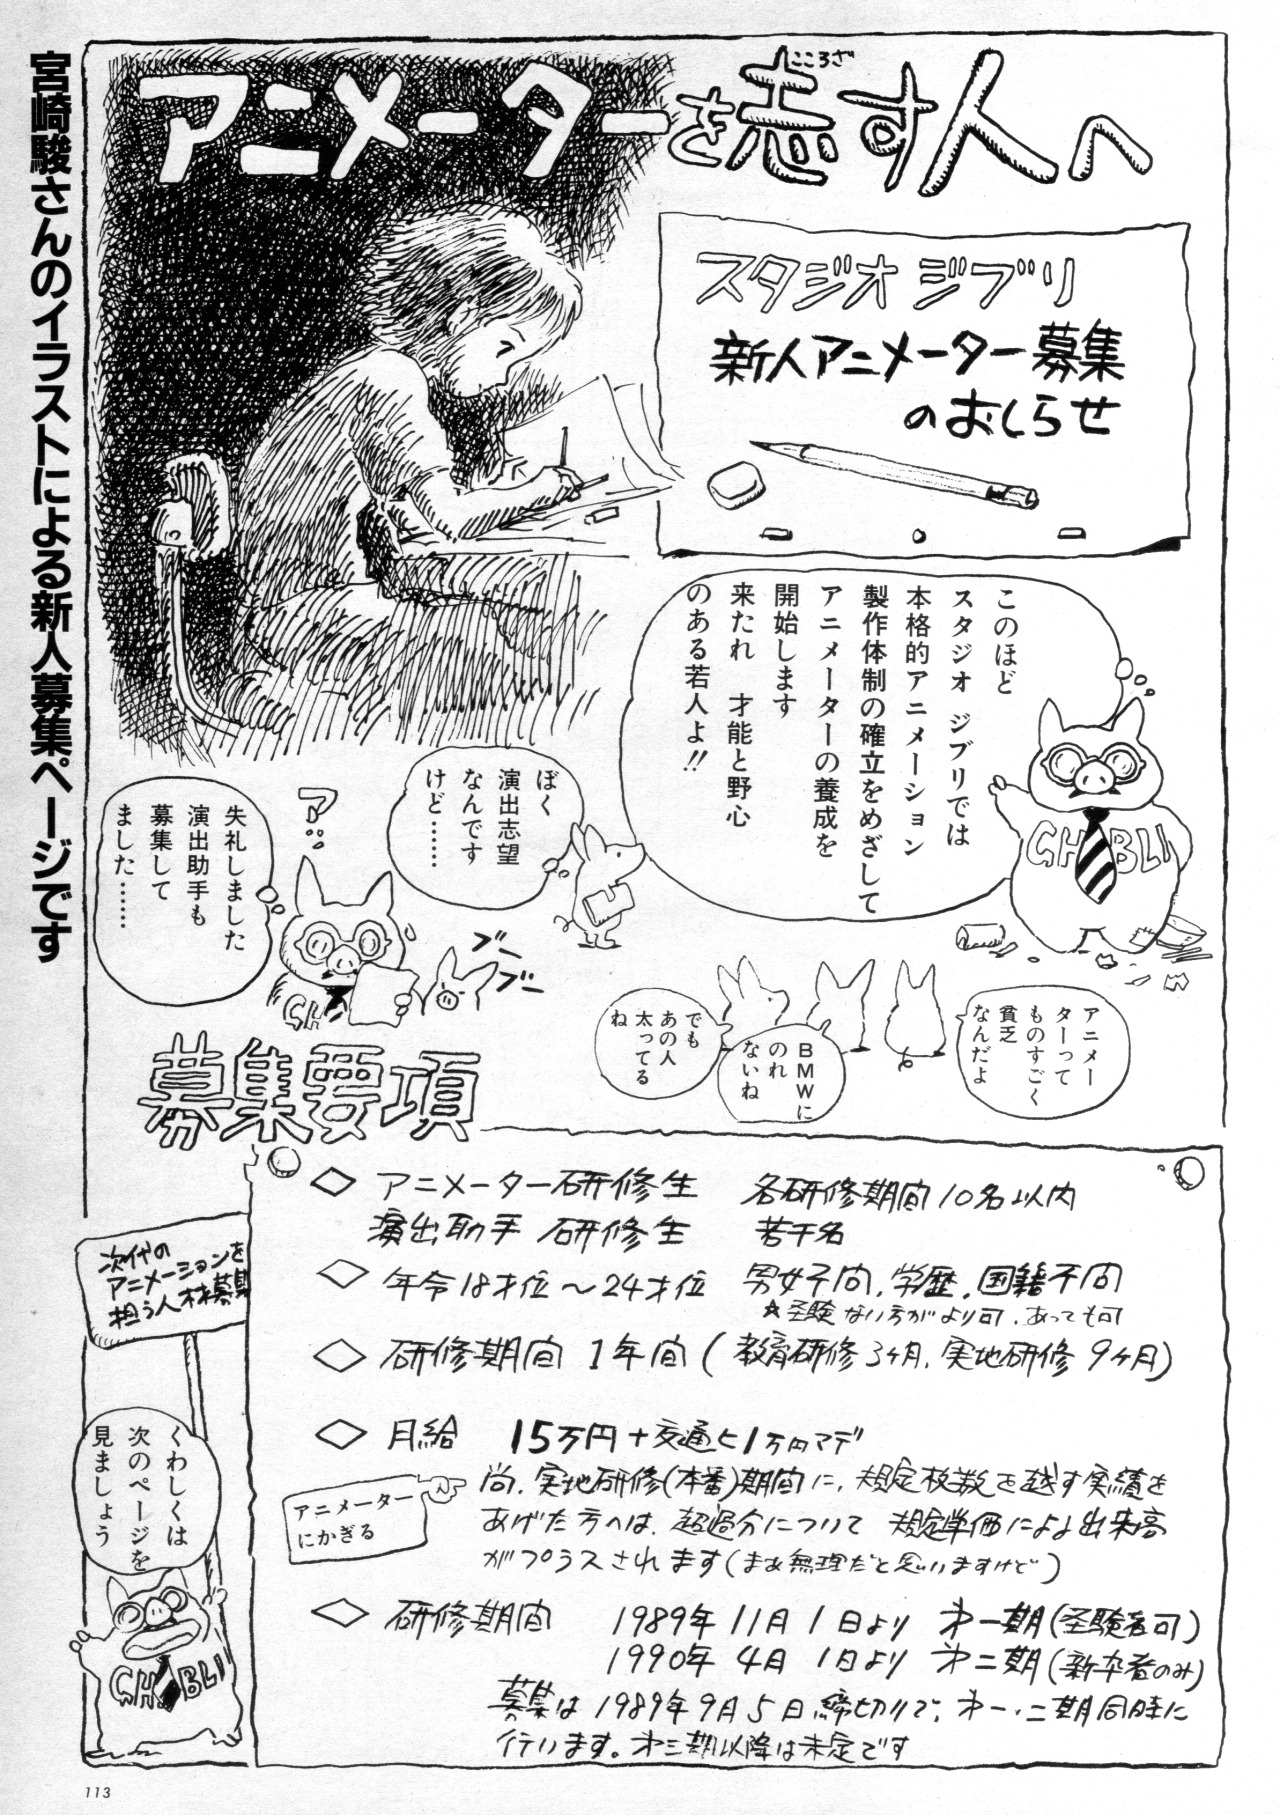 宮崎駿さんのイラストによる新人募集ページです
こころざ
アニメーターを志す人へ
スタジオ ジブリ
新人アニメーター募集
のおしらせ
このほど
スタジオ ジブリでは
本格的アニメーション
製作体制の確立をめざして
アニメーターの養成を
開始します
来たれ 才能と野心
のある若人よ!!
GHIBLI
ぼく
演出志望
なんです
けど……
ア…
失礼しました
演出助手も
募集して
ました……
GH
ブーブー
アニメー
ターって
ものすごく
貧乏
なんだよ
BMWに
のれ
ないね
でも
あの人
太ってる
ね
募集要項
◇ アニメーター研修生 各研修期間10名以内
演出助手 研修生 若干名
◇ 年令18才位〜24才位 男女不問、学歴、国籍不問
☆経験ない方がより可、あっても可
◇ 研修期間 1年間(教育研修3ヶ月、実地研修9ヶ月)
◇ 月給 15万円+交通ヒ1万円マデ
アニメーター
にかぎる
尚、実地研修(本番)期間に、規定枚数を越す実績を
あげた方へは、超過分について 規定単価による出来高
がプラスされます(まあ無理だと思いますけど)
◇ 研修期間 1989年11月1日より 才一期(経験者可)
1990年4月1日より 才二期(新卒者のみ)
募集は1989年9月5日締切りで、才一・二期同時に
行います。才三期以降は未定です
次代の
アニメーションを
担う人材募集
くわしくは
次のページを
見ましょう
GHIBLI
113